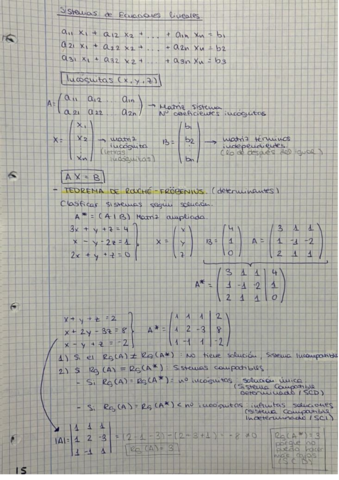 Sistemas de Ecuaciones Lineales
a11 x1 + a12 x2 + ... + a1n xn = b1
a21 x1 + a22 x2 + ... + a2n xn = b2
a31 x1 + a32 x2 + ... + a3n xn = b3
Incógnitas (x, y, z)
A = ( a11 a12 a1n
a21 a22 a2n ) → Matriz Sistema
Nº coeficientes incógnitas
X = ( x1
x2
xn ) → matriz incógnita
B = ( b1
b2
bn ) → matriz términos independientes
AX = B
- TEOREMA DE ROUCHÉ-FRÖBENIUS. (determinantes)
Clasificar sistemas según solución
A* = (A | B) Matriz ampliada.
3x + y + z = 4
x - y - 2z = 1
2x + y + z = 0
X = ( x
y
z )
B = ( 4
1
0 )
A = ( 3 1 1
1 -1 -2
2 1 1 )
A* = ( 3 1 1 | 4
1 -1 -2 | 1
2 1 1 | 0 )
x + y + z = 2
x + 2y - 3z = 8
x - y + z = -2
A* = ( 1 1 1 | 2
1 2 -3 | 8
1 -1 1 | -2 )
1) Si el Rg(A) ≠ Rg(A*) No tiene solución, Sistema Incompatible
2) Si Rg(A) = Rg(A*) Sistemas compatibles
- Si Rg(A) = Rg(A*) = nº incógnitas solución única
(Sistema Compatible determinado) (SCD)
- Si Rg(A) = Rg(A*) < nº incógnitas infinitas soluciones
(Sistema Compatible Indeterminado) (SCI)
|A| = | 1 1 1
1 2 -3
1 -1 1 |
≠ 0
Rg(A) = 3
Rg(A*) = 3
porque no puede haber más
15